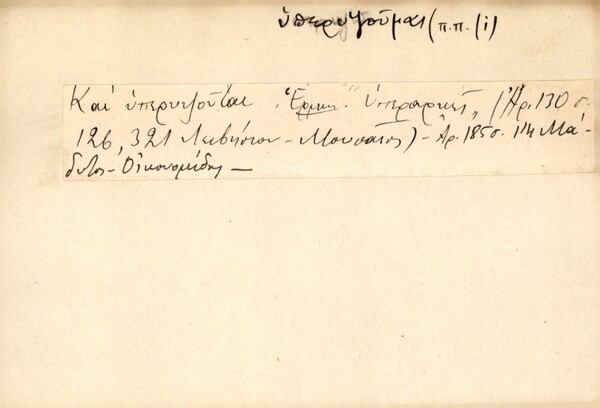 ὑπερυψοῦμαι (π.π. /i)
Καὶ ὑπερυψοῦται . Ἑρμην. "ὑπεραρκεῖ„ (Ἀρ. 130 σ.
126, 321 Λειβήσιον - Μουσαῖος) - Ἀρ. 185 σ. 114 Μά-
δυτος - Οἰκονομίδης —